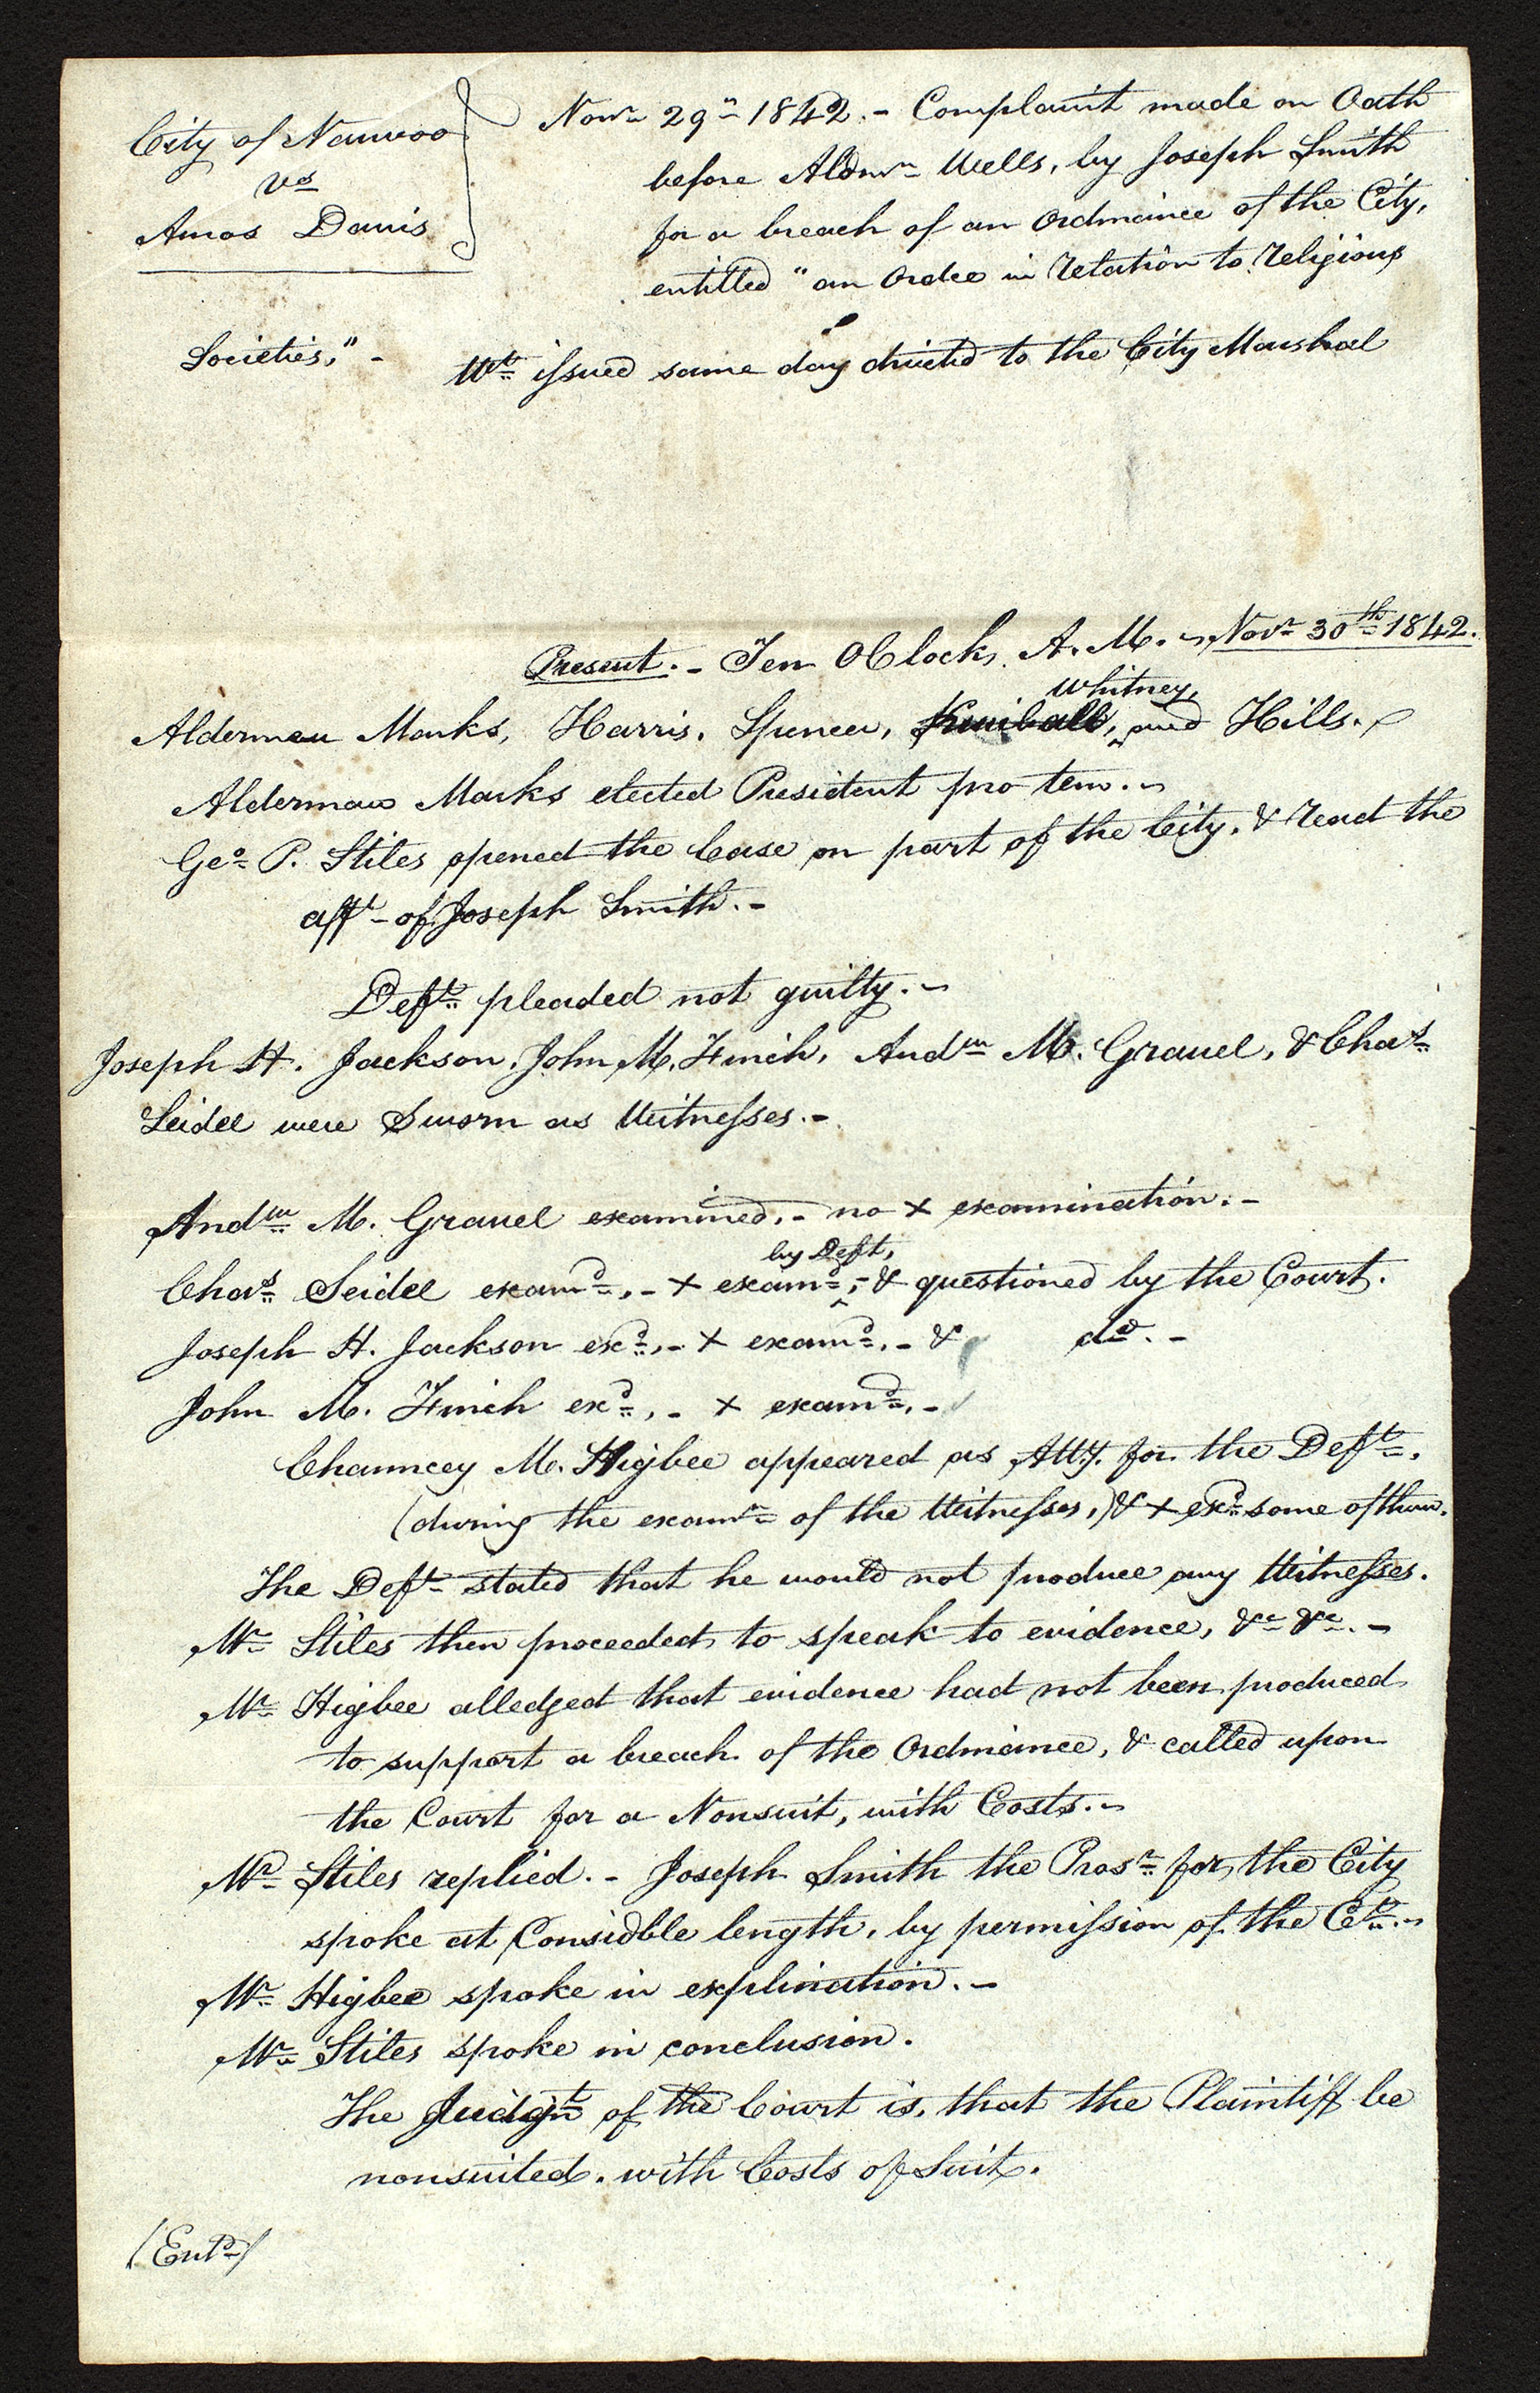 City of Nauvoo
vs
Amos Davis
Novr 29th 1842. - Complaint made on Oath
before Aldmn Wells, by Joseph Smith
for a breach of an Ordinance of the City,
entitled "an Ordce in relation to religious
Societies," -
Wt issued same day directed to the City Marshal
Present. - Ten OClock, A. M. - Novr 30th 1842.
Whitney,
Aldermen Marks, Harris, Spencer, Kimball, and Hills. -
Alderman Marks elected President pro tem. -
Geo P. Stiles opened the Case on part of the City, & read the
afft of Joseph Smith. -
Deft pleaded not guilty. -
Joseph H. Jackson, John M. Finch, Andw M. Gravel, & Chas
Seidel were Sworn as Witnesses. -
Andw M. Gravel examined, - no + examination. -
by Deft,
Chas Seidel examd, - + examd, - & questioned by the Court.
Joseph H. Jackson exd, - + examd, - & do. -
John M. Finch exd, - + examd, -
Chauncey M. Higbee appeared as Atty. for the Deft,
(during the examn of the Witnesses,) & + exd some of them.
The Deft stated that he would not produce any Witnesses.
Mr Stiles then proceeded to speak to evidence, &c &c. -
Mr Higbee alledged that evidence had not been produced
to support a breach of the Ordinance, & called upon
the Court for a Nonsuit, with Costs. -
Mr Stiles replied. - Joseph Smith the Prosr for the City
spoke at Considble length, by permission of the Ct. -
Mr Higbee spoke in explination. -
Mr Stiles spoke in conclusion.
The Judgt of the Court is, that the Plaintiff be
nonsuited, with Costs of Suit.
(Entd)